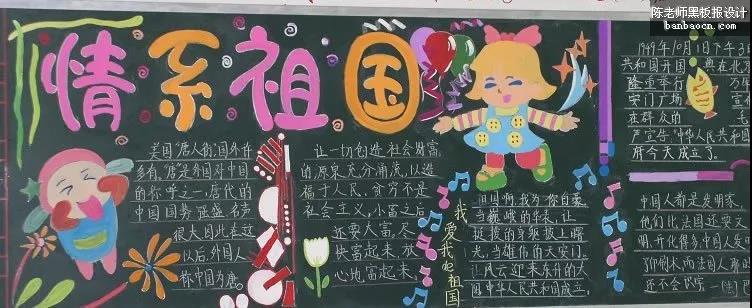 陈老师黑板报设计
banbaocn.com
情系祖国
美国"唐人街"国外许
多有，"唐"是各国对中国
的称呼之一，唐代的
中国国势强盛，名声
很大因此在这
以后，外国人
称中国为唐。
让一切创造社会财富
的源泉充分涌流，以造
福于人民，贫穷不是
社会主义，小富之后
还要大富，尽
快富起来，放
心地富起来。
我爱我的祖国
祖国啊，我为你自豪
当巍峨的华表，让
挺拔的身躯披上曙
光，当雄伟的天安门
让风云迎来东升的太
阳中华人民共和国成立，
1949年10月1日下午3
共和国开国 典在北京
隆重举行 万年
安门广场 宣
在群众的 毛
严宣告，"中华人民共和国
府今天成立了。
中国人都是发明家，
他们比法国还安文
明，开化得多，中国人发
还不会识字